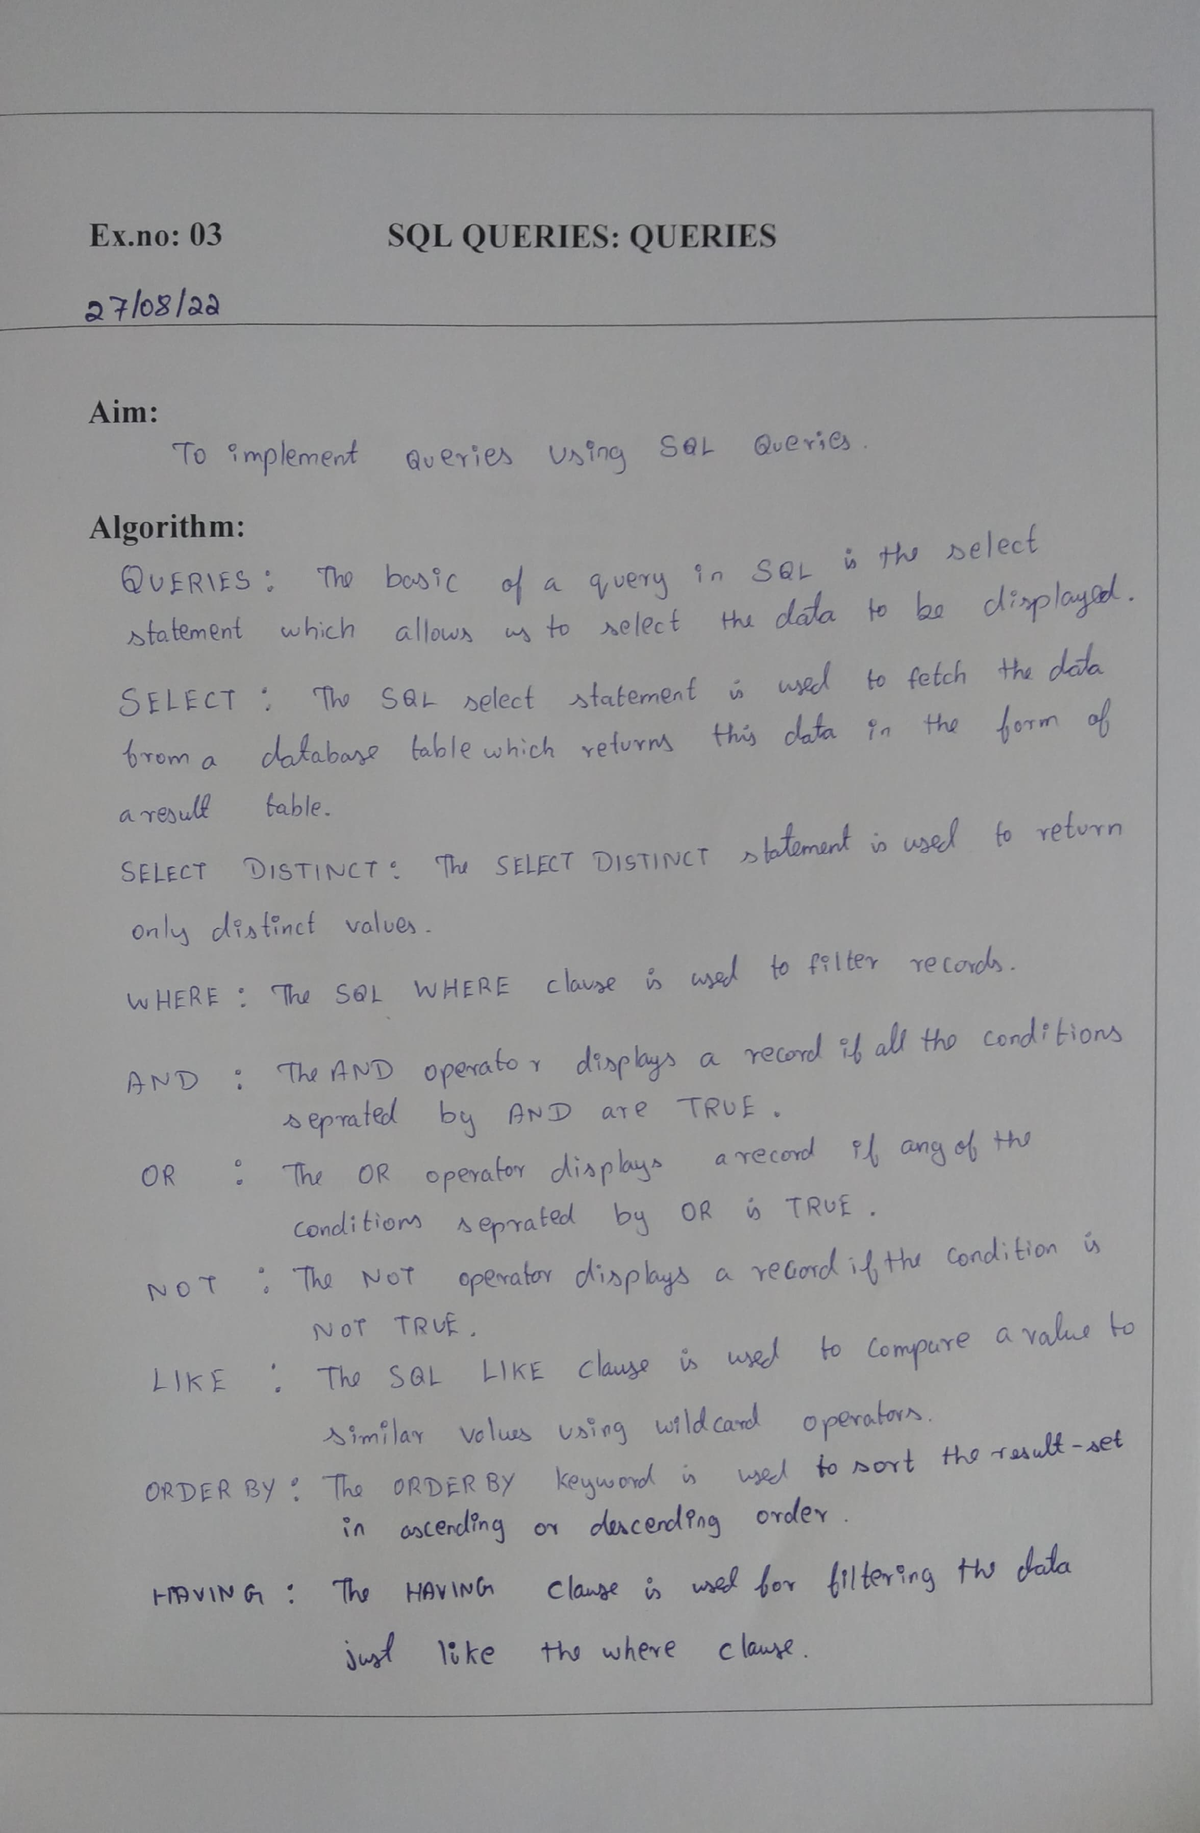 Ex.no: 03 SQL QUERIES: QUERIES
27/08/22
Aim:
To implement Queries using SQL Queries.
Algorithm:
QUERIES: The basic of a query in SQL is the select
statement which allows us to select the data to be displayed.
SELECT : The SQL select statement is used to fetch the data
from a database table which returns this data in the form of
a result table.
SELECT DISTINCT: The SELECT DISTINCT statement is used to return
only distinct values.
WHERE : The SQL WHERE clause is used to filter records.
AND : The AND operator displays a record if all the conditions
seprated by AND are TRUE.
OR : The OR operator displays a record if any of the
conditions seprated by OR is TRUE.
NOT : The NOT operator displays a record if the condition is
NOT TRUE.
LIKE : The SQL LIKE clause is used to compare a value to
similar values using wildcard operators.
ORDER BY: The ORDER BY keyword is used to sort the result-set
in ascending or descending order.
HAVING : The HAVING clause is used for filtering the data
just like the where clause.